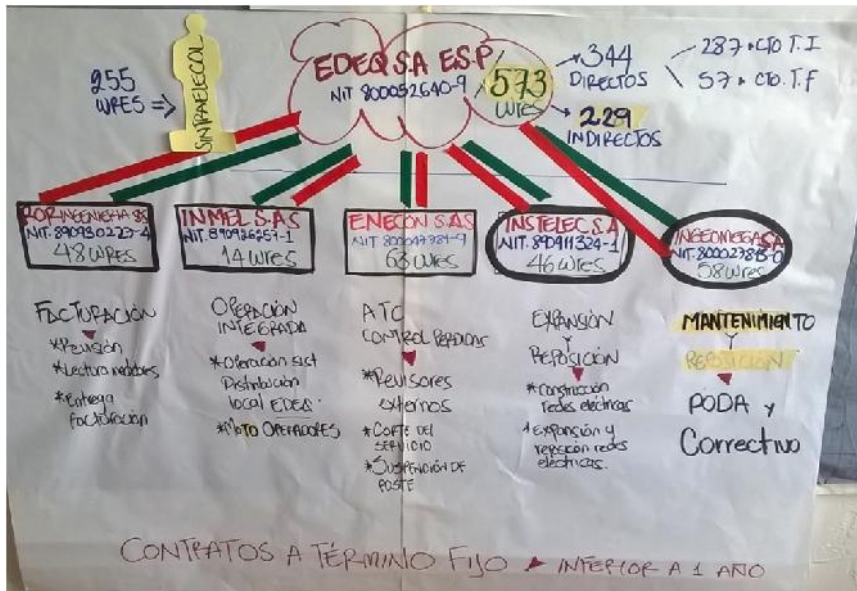 255
WRES =>
SINTRAELECOL
EDEQ S.A E.S.P
NIT 800052640-9
573
WRES
344
DIRECTOS
287 * CTO T.I
57 * CTO. T.F
229
INDIRECTOS
ROR INGENIERIA SAS
NIT. 890930227-4
48 WRES
INMEL S.AS
NIT. 890926257-1
14 Wres
ENECON S.AS
63 WRES
INSTELEC S.A
NIT. 890911324-1
46 Wres
INGEOMEGA S.A
58 Wres
FACTURACIÓN
*Revisión
*Lectura medidores
*Entrega
facturación
OPERACIÓN
INTEGRADA
*Operación sist
Distribución
local EDEQ
*MOTO OPERADORES
ATC
CONTROL PERDIDAS
*Revisores
externos
*CORTE DEL
SERVICIO
*SUSPENCIÓN DE
POSTE
EXPANSIÓN
Y
REPOSICIÓN
*Construcción
redes eléctricas
*Expansión y
reposición redes
eléctricas.
MANTENIMIENTO
Y
REPOSICIÓN
PODA y
Correctivo
CONTRATOS A TÉRMINO FIJO ► INFERIOR A 1 AÑO